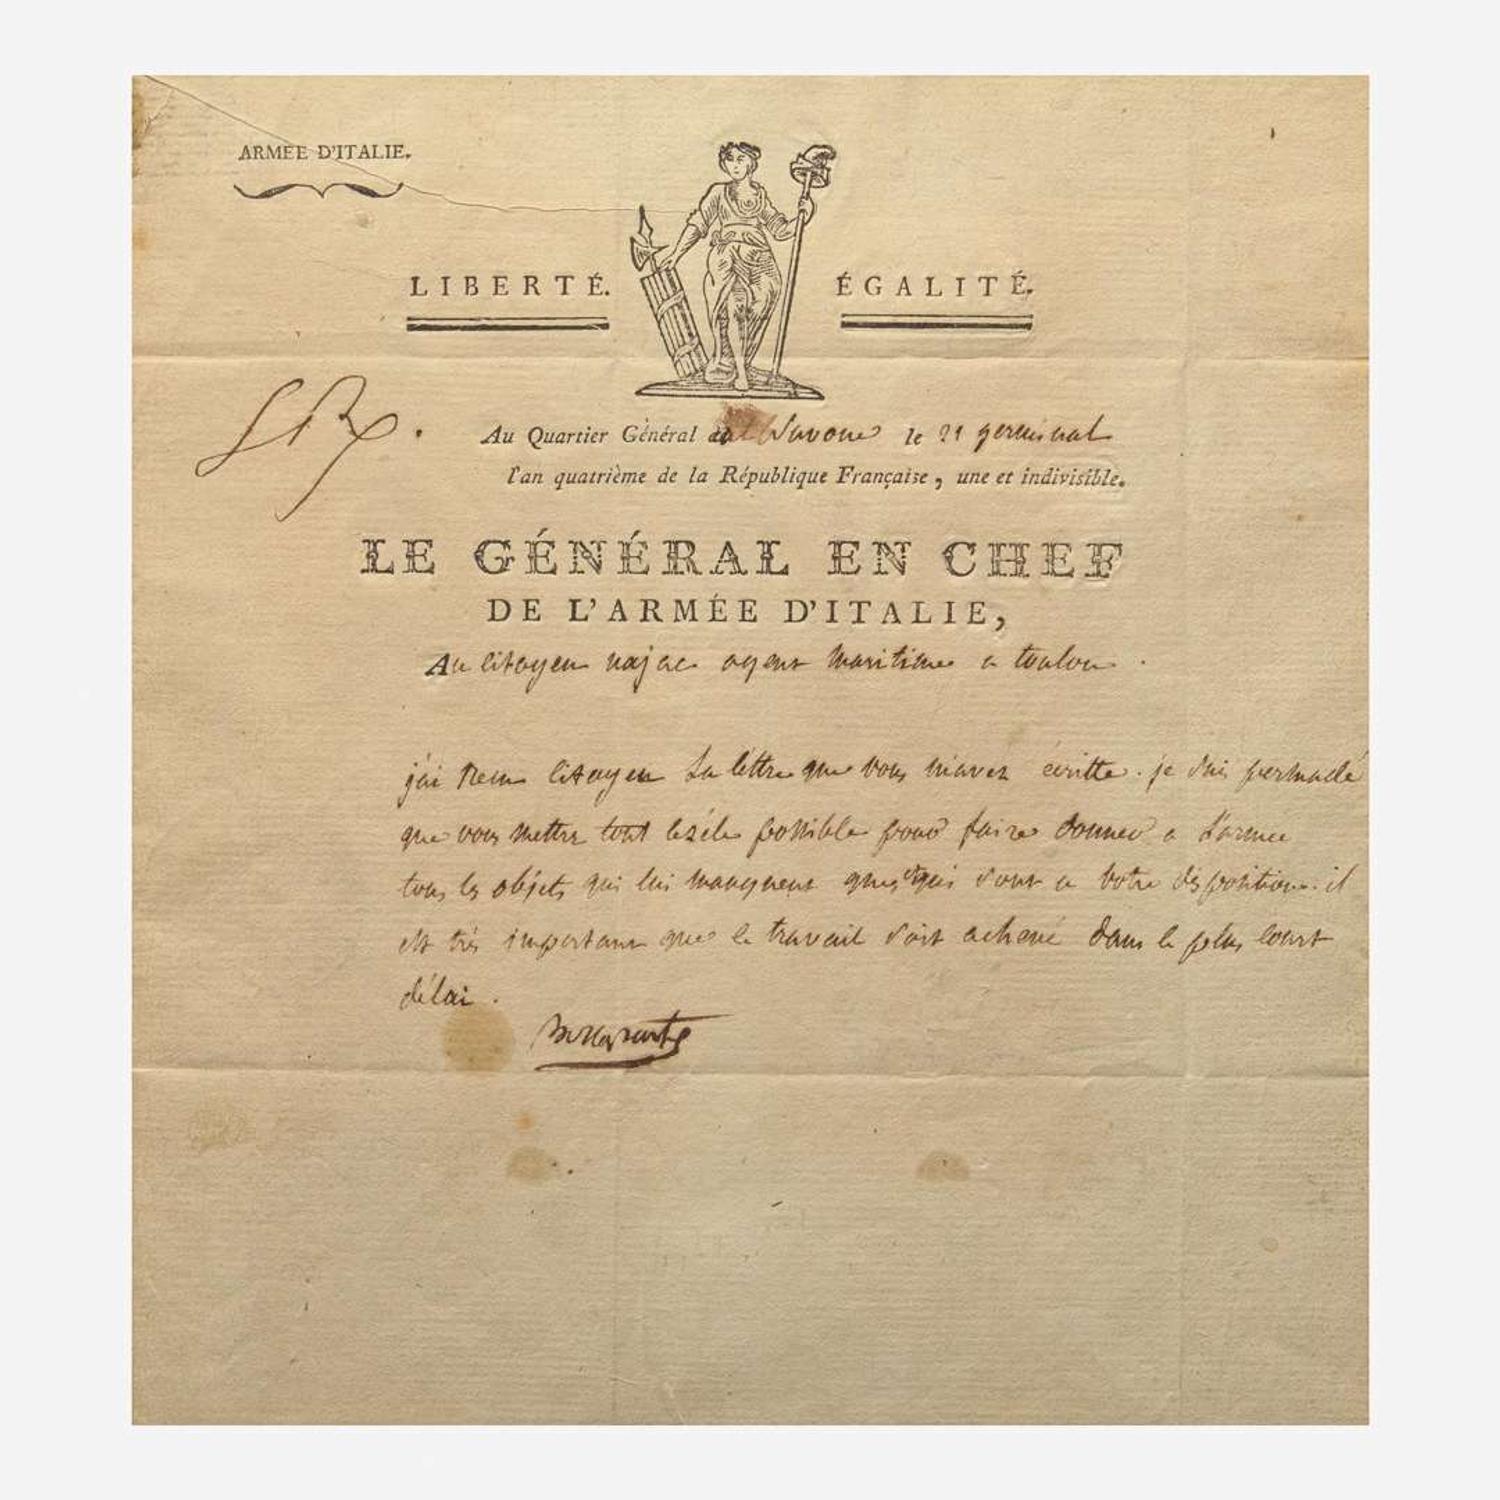 ARMÉE D'ITALIE.
LIBERTÉ. ÉGALITÉ.
Au Quartier Général Savone le 21 germinal
l'an quatrième de la République Française, une et indivisible.
LE GÉNÉRAL EN CHEF
DE L'ARMÉE D'ITALIE,
Au Citoyen najac agent maritime a toulon.
j'ai recu citoyen la lettre que vous m'avez écritte. je suis persuadé
que vous mettrez tout le zéle possible pour faire donner a l'armee
tous les objets qui lui manquent et qui sont a votre disposition. il
est très important que le travail soit achevé dans le plus court
délai.
Bonaparte